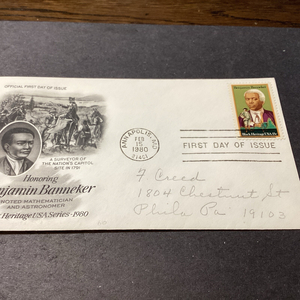 OFFICIAL FIRST DAY OF ISSUE
A SURVEYOR OF
THE NATION'S CAPITOL
SITE IN 1791
Honoring
njamin Banneker
NOTED MATHEMATICIAN
AND ASTRONOMER
Heritage USA Series · 1980
ANNAPOLIS, MD
FEB
15
1980
21401
FIRST DAY OF ISSUE
Benjamin Banneker
Black Heritage USA 15c
F Creed
1804 Chestnut St
Phila Pa 19103